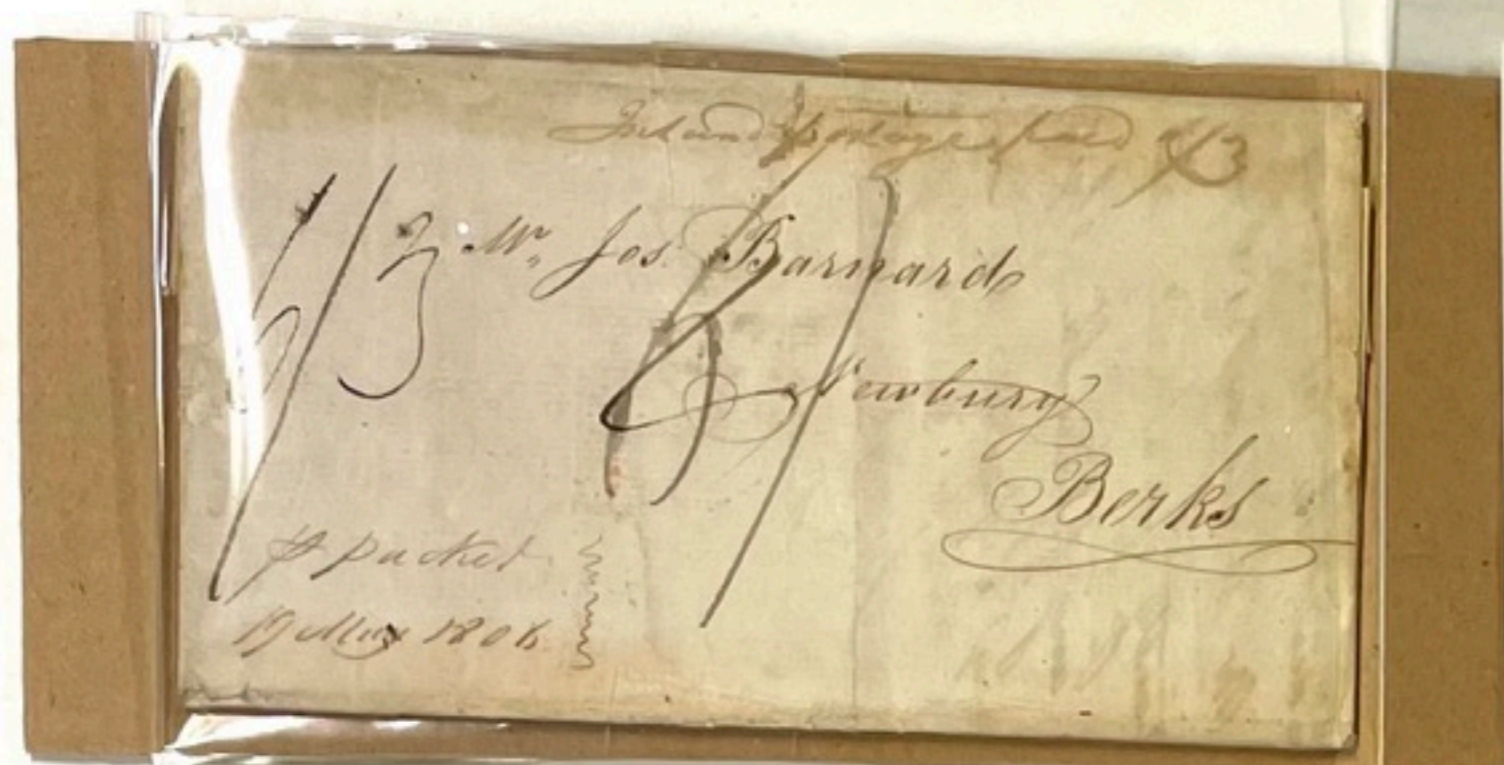 Inland postage paid 1/3
Mr. Jos. Barnard
Newbury
Berks
p packet
19 May 1806